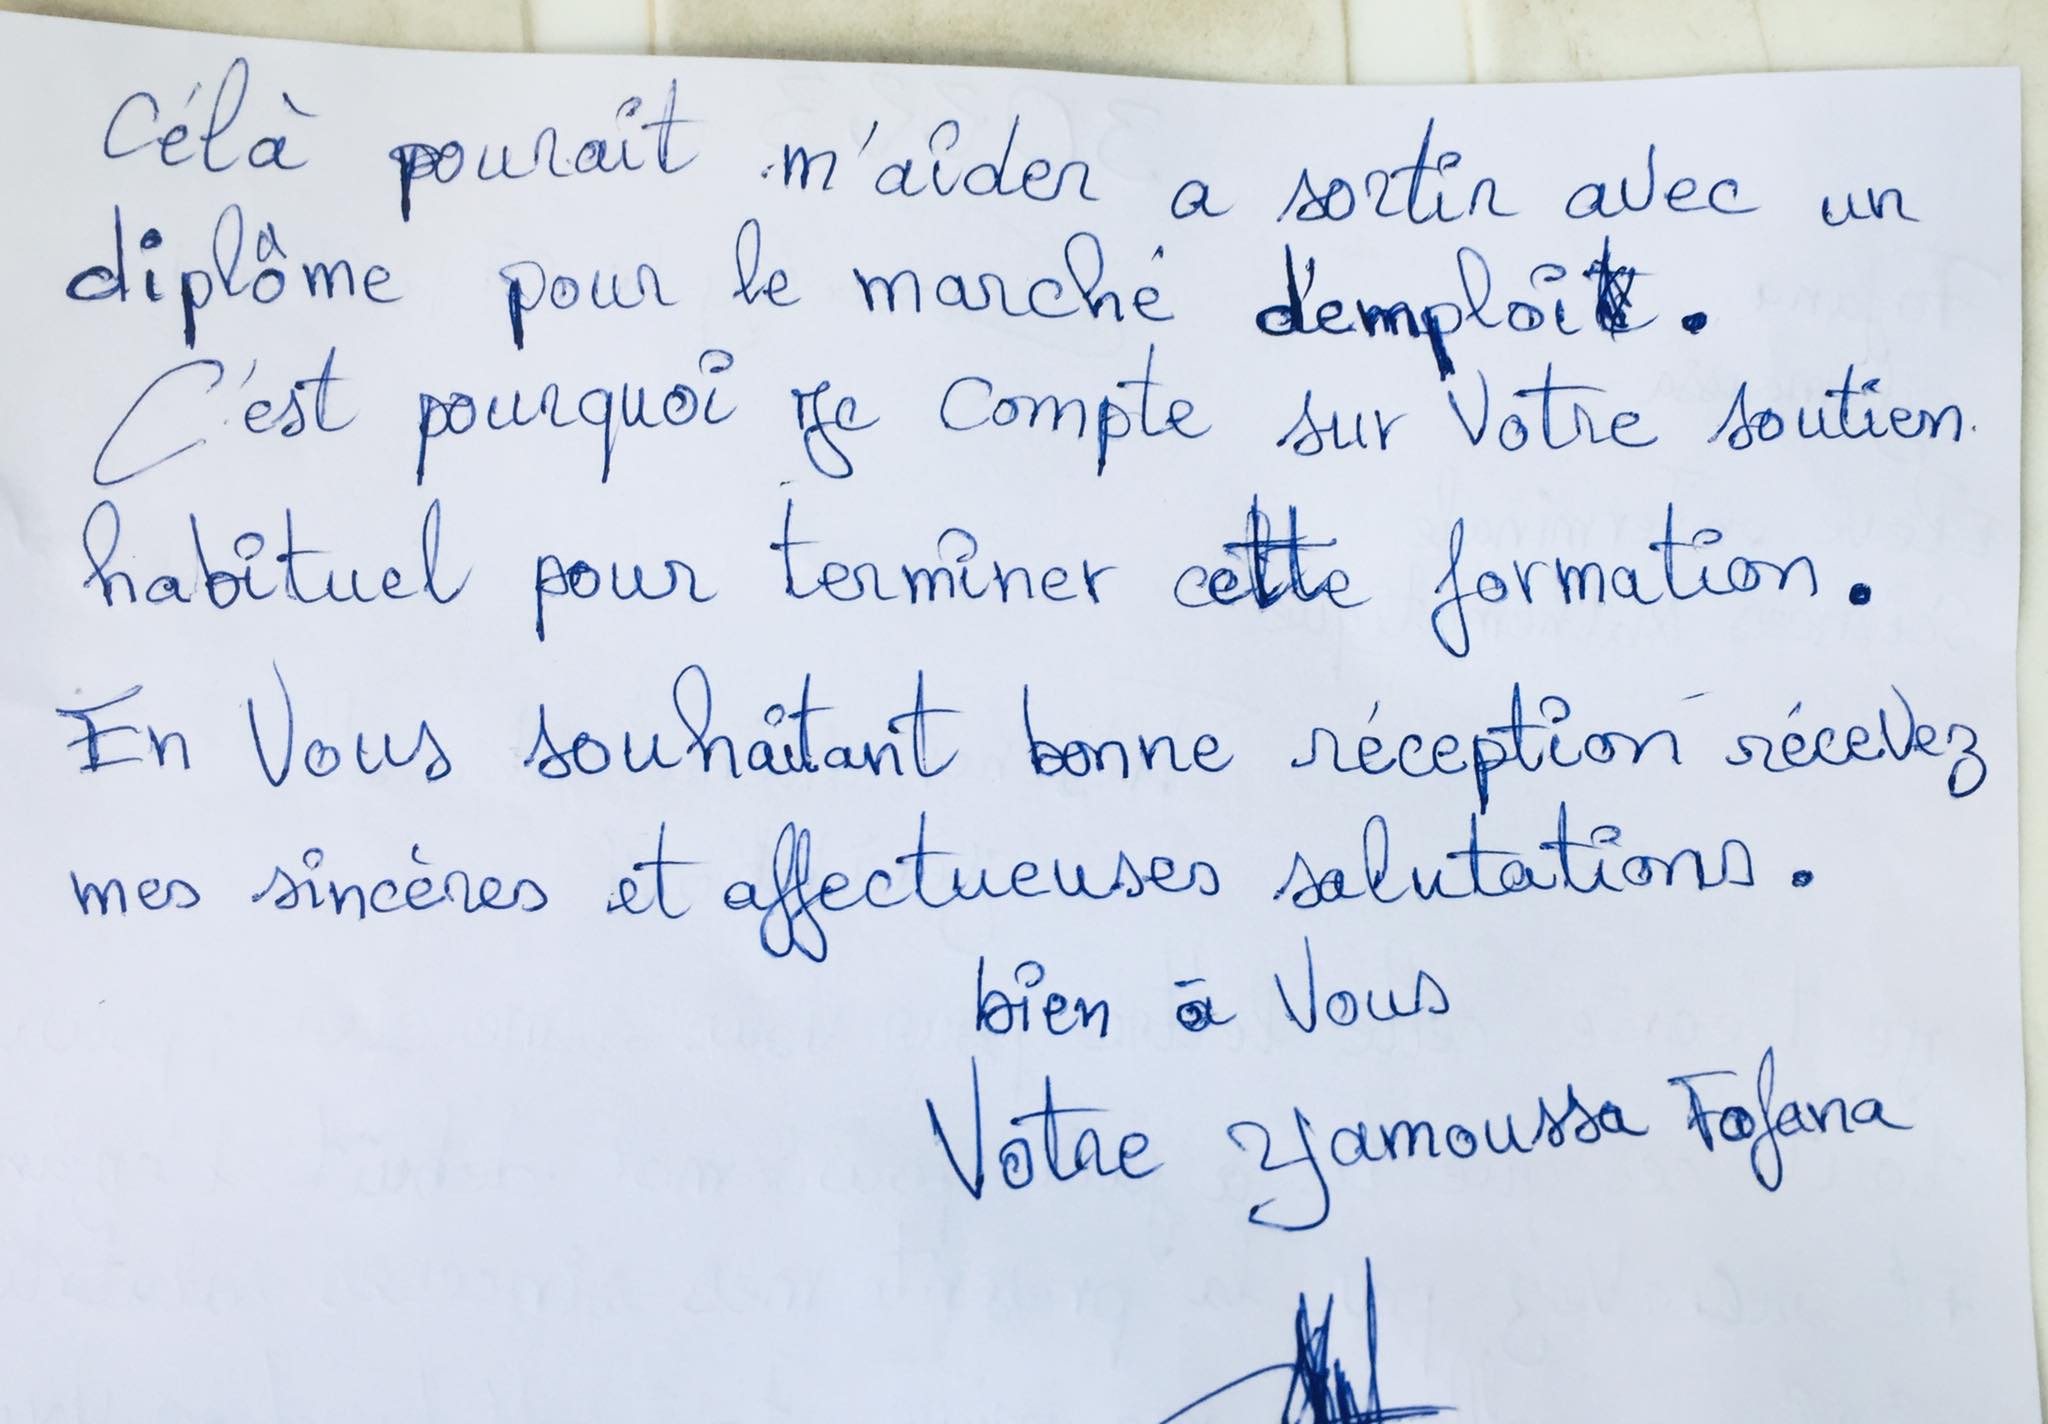 Célà pourait m'aider a sortir avec un
diplôme pour le marché d'emploi.
C'est pourquoi je compte sur votre soutien
habituel pour terminer cette formation.
En vous souhaitant bonne réception récevez
mes sincères et affectueuses salutations.
bien à vous
Votre Yamoussa Fofana